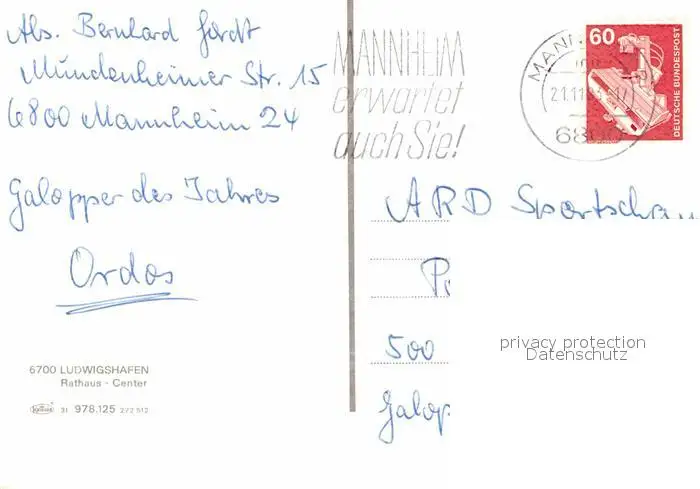 Abs. Bernhard
Mundenheimer Str. 15
6800 Mannheim 24
Galopper des Jahres
Ordos
6700 LUDWIGSHAFEN
Rathaus - Center
31 978.125 272 512
MANNHEIM
erwartet
auch Sie!
MANN
21.11
6800
60
DEUTSCHE BUNDESPOST
ARD Sportschau
500
Galop
privacy protection
Datenschutz